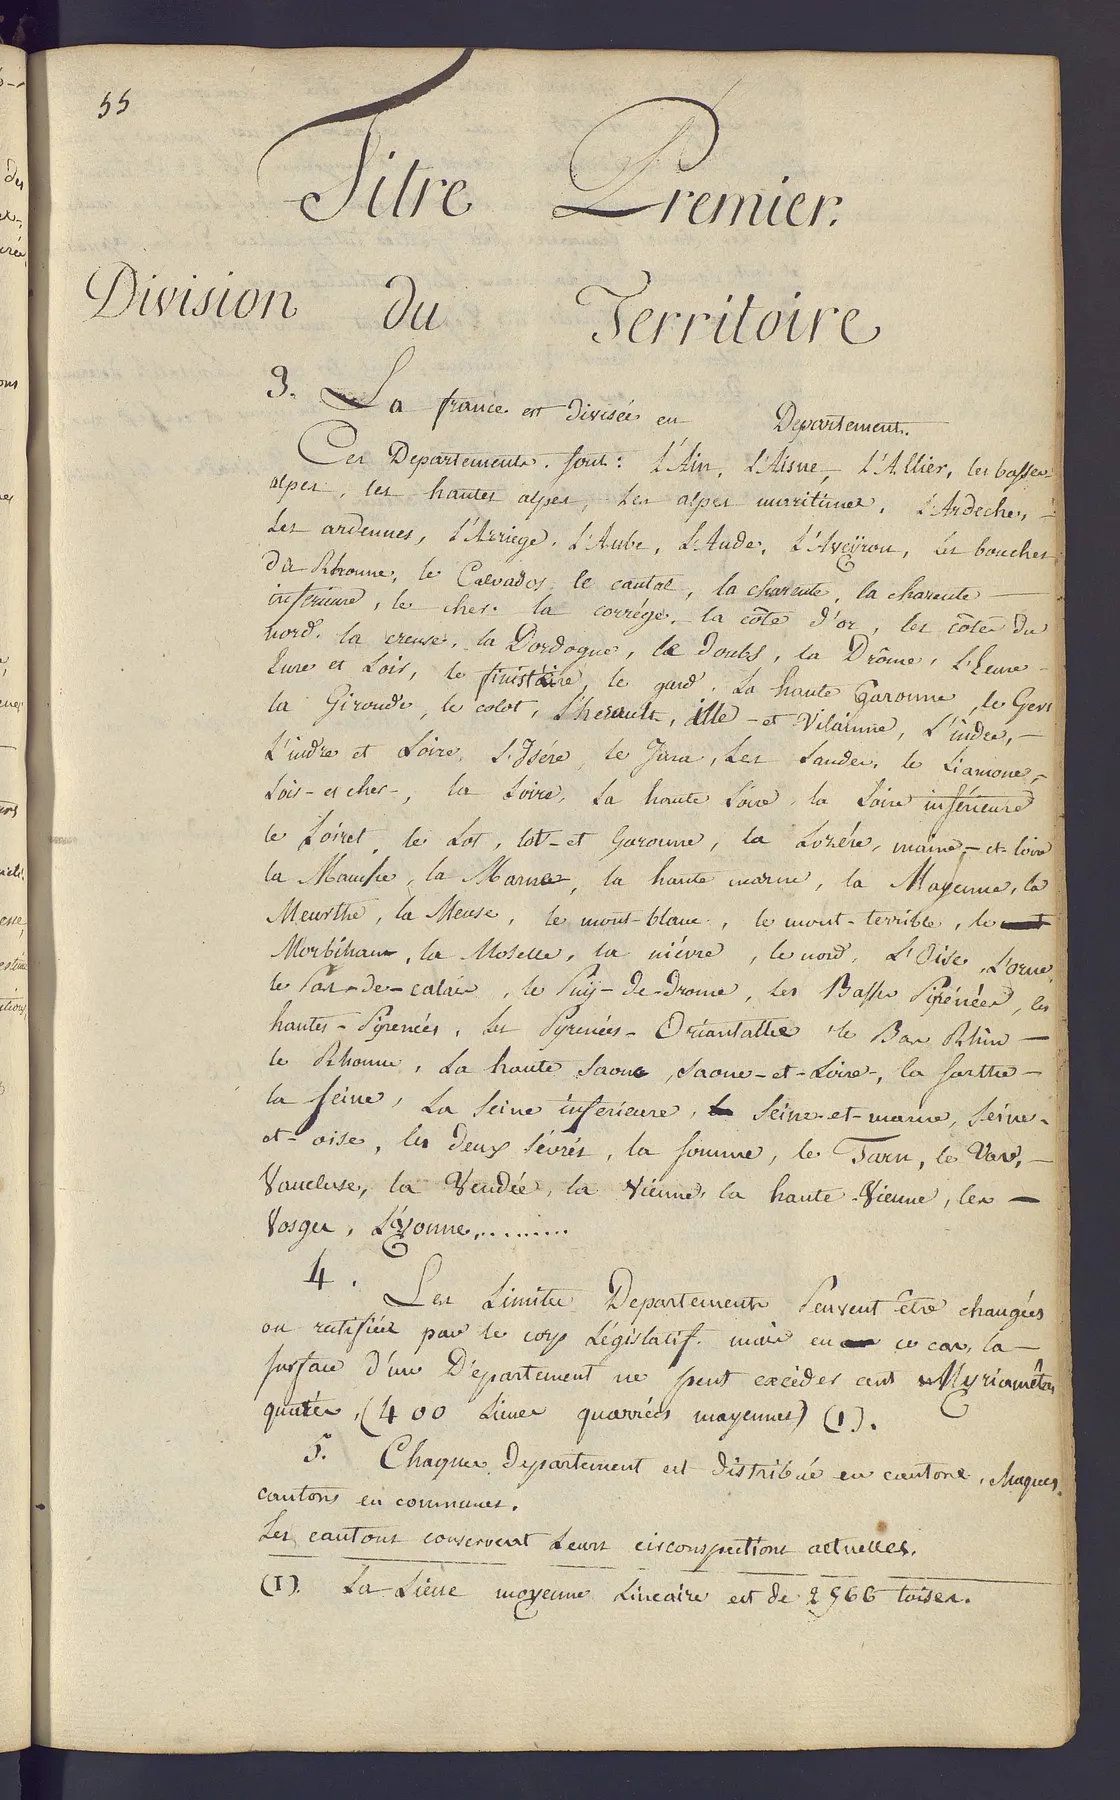 55
Titre Premier.
Division du Territoire
3. La france est divisée en Departement.
Ces Departements. sont: L'Ain, L'Aisne, L'Allier, les basses
alpes, les hautes alpes, Les alpes maritimes, L'Ardeche, -
Les ardennes, L'Arriege, L'Aube, L'Aude, L'Aveÿron, Les bouches
du Rhonne, le Calvados, le cantal, la charente, la charente —
inferieure, le cher, la corrége, la côte d'or, les côtes du
nord, la creuse, la Dordogne, le doubs, la Drôme, L'Eure -
Eure et Loir, le finistaire, le gard, La haute Garonne, le Gers
la Gironde, le colot, L'herault, ille - et - Vilainne, L'indre, -
L'indre et Loire, L'Isére, le Jura, Les Landes, le Liamone, -
Loir - et cher -, la Loire, La haute Loire, la Loire inférieure
le Loiret, le Lot, lot - et Garonne, la Lozére, maine - et - loire
la Manche, la Marne, la haute marne, la Mayenne, la
Meurthe, la Meuse, le mont-blanc, le mont-terrible, le
Morbihan, la Moselle, la niévre, le nord, L'Oise, L'orne
le Pas-de-calais, le Puÿ-de-drome, les Basses Pÿrénées, les
hautes - Pÿrenées, les Pyrenées - Oriantalles le Bas Rhin —
le Rhonne, La haute saone, saone-et-Loire, la sarthe —
la seine, La seine inferieure, seine-et-marne, seine-
et-oise, les deux sévres, la somme, le Tarn, le Var, -
Vaucluse, la Vendée, la Vienne, la haute-Vienne, les —
Vosges, L'ÿonne,.........
4. Les Limites Departements Peuvent être changées
ou ratifiées par le corp Législatif. mais en ce cas, la —
surface d'un Département ne peut excéder cent Myriamêtres
quarés, (400 Lieues quarrées moyennes) (1).
5. Chaques Departement est distribué en cantons, chaques
cantons en communes.
Les cantons conservent Leurs circonspections actuelles.
(1). La Lieue moyenne Lineaire est de 2566 toises.